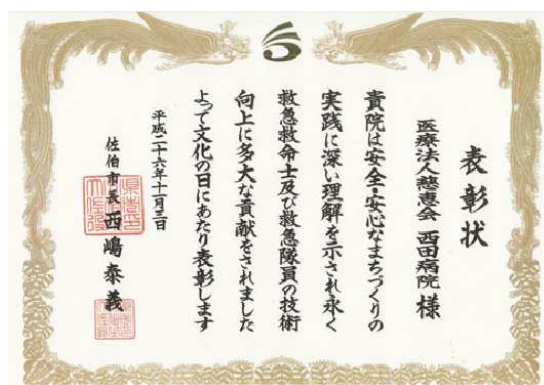 表彰状
医療法人慈恵会 西田病院 様
貴院は安全・安心なまちづくりの
実践に深い理解を示され永く
救急救命士及び救急隊員の技術
向上に多大な貢献をされました
よって文化の日にあたり表彰します
平成二十六年十一月三日
佐伯市長 西嶋泰義